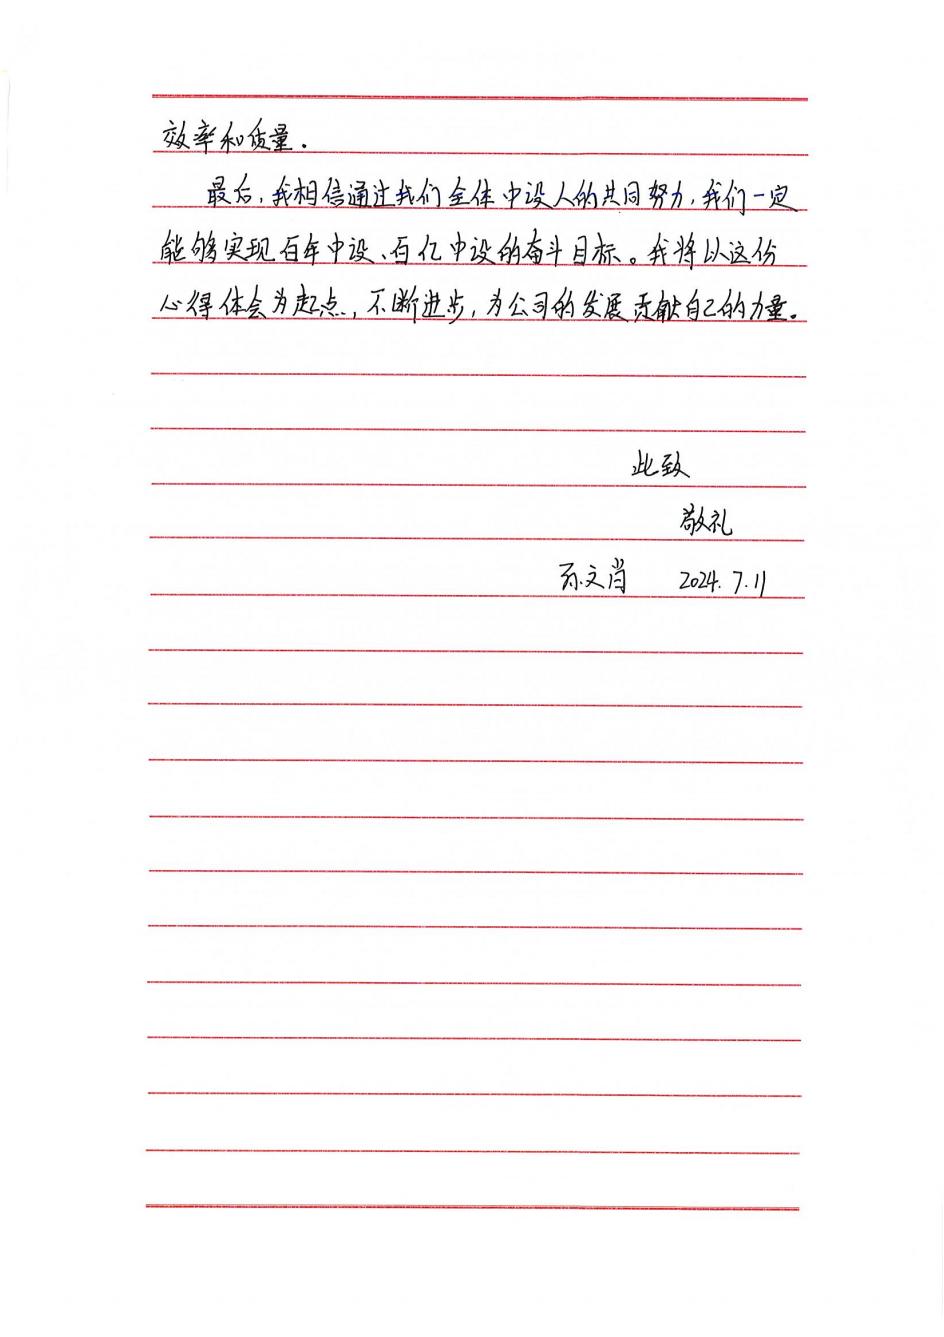 效率和质量.
最后,我相信通过我们全体中设人的共同努力,我们一定
能够实现百年中设、百亿中设的奋斗目标。我将以这份
心得体会为起点,不断进步,为公司的发展贡献自己的力量。
此致
敬礼
孙文肖 2024.7.11